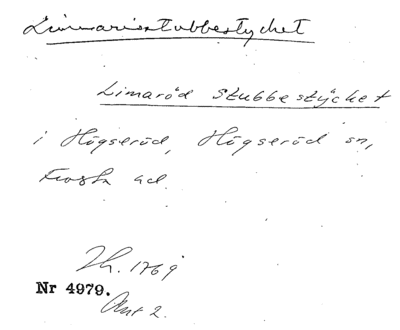 Limmarisstubbestycket
Limaröd Stubbestycket
i Högseröd, Högseröd sn,
Frosta hd.
Lh. 1769
Nr 4979.
Akt 2.